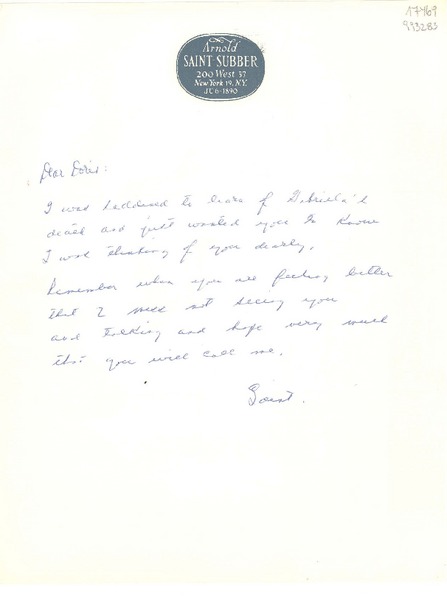 17469
993283
Arnold
SAINT SUBBER
200 West 57
New York 19, N.Y.
JU 6-1890
Dear Doris:
I was saddened to learn of Gabriela's
death and just wanted you to know
I was thinking of you dearly.
Remember when you are feeling better
that I miss not seeing you
and talking and hope very much
that you will call me.
Saint.